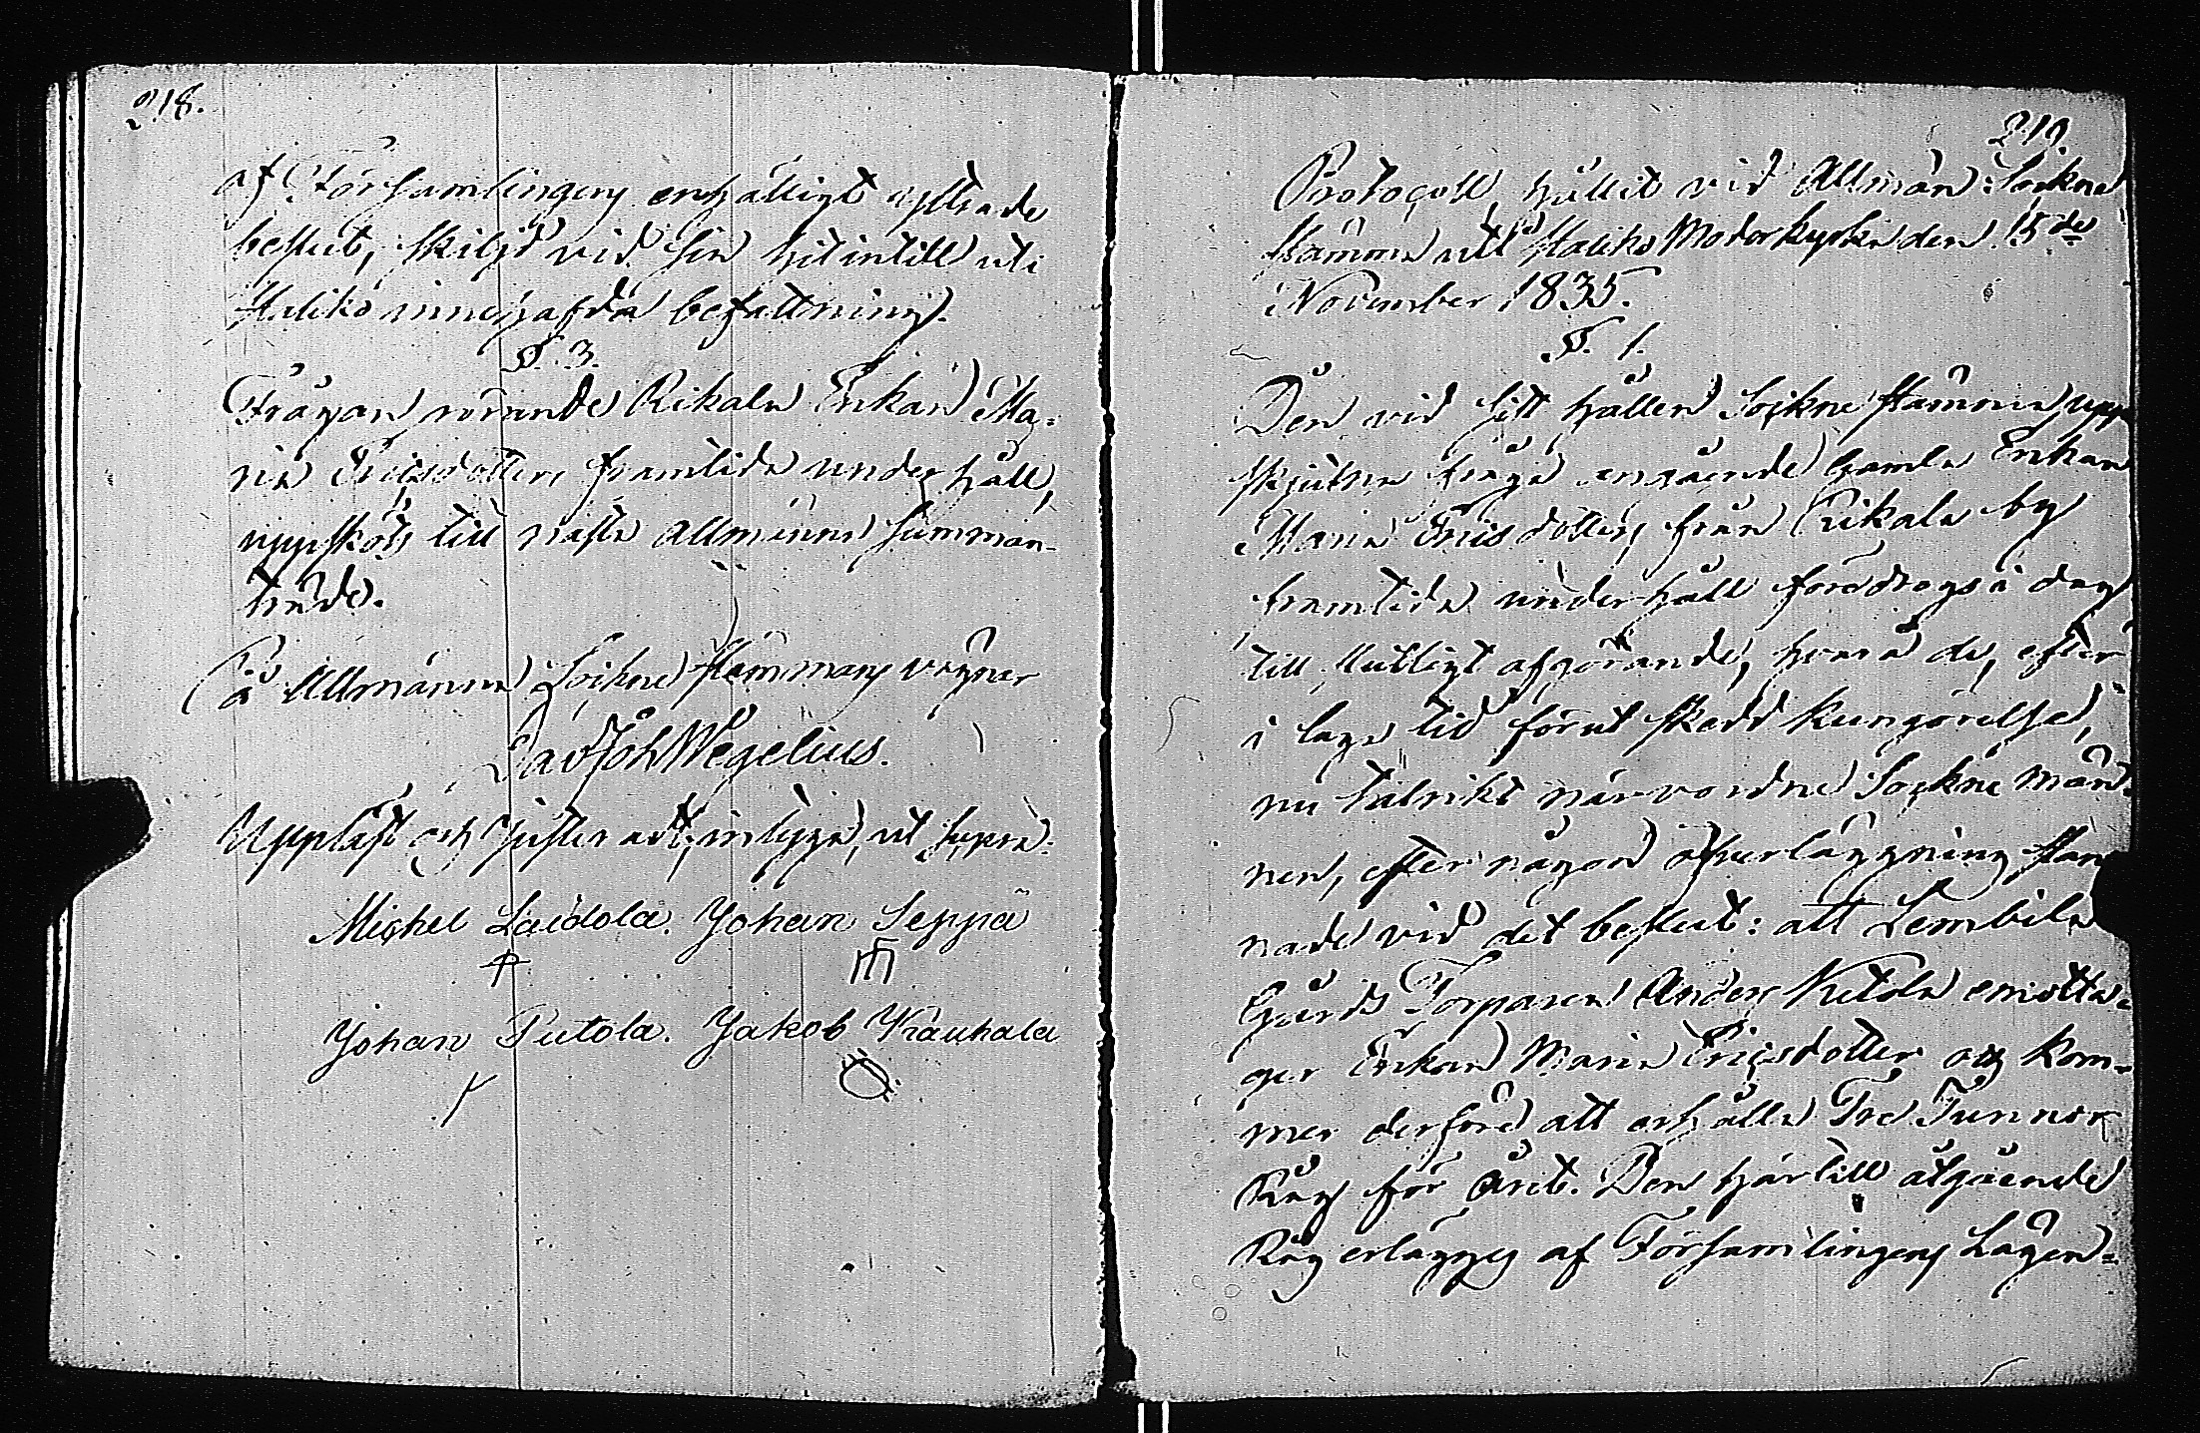 218.
af Församlingens enhälligt yttrade
beslut, skiljd vid sin hitintill uti
Haliko innehafda befattning.
§. 3.
Frågan rörande Rikala Enkan Ma-
ria Ericsdotters framtida underhåll,
uppsköts till nästa allmänna samman-
träde.
På Allmänna Sockne stämmans vägnar
Dav Joh Wegelius.
Uppläst och justeradt, intyga, ut supra:
Michel Laidola. Johan Seppä
Johan Tutola. Jakob Kauhala
219.
Protocoll, hållit vid Allmän Sockne
stämma uti Haliko Moderkyrka den 15de
November 1835.
§. 1.
Den vid sist hållen Sockne stämma upp
skjutna fråga angående gamla Enkan
Maria Ericsdotters från Rikala by
framtida underhåll föredrogs i dag
till slutligt afgörande, hvarå de, efter
i laga tid förut skedd kungörelse,
nu talrikt närvordne Sockne män-
nen, efter någon öfverläggning stan
nade vid det beslut: att Lembila
Gårds Torparen Anders Ketola emotta-
ger Enkan Maria Ericsdotter och kom-
mer derföre att erhålla Tre Tunnor
Råg för året. Den härtill åtgående
Råg erlägges af Församlingens Lägen-